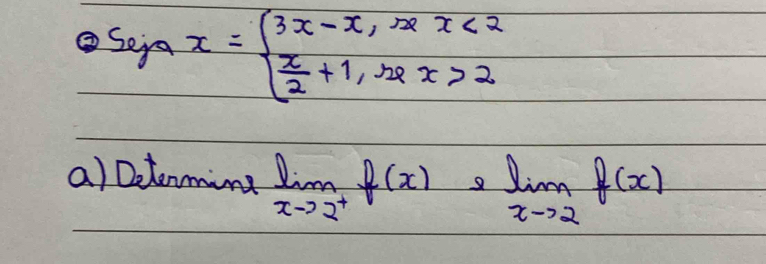 ② Seja x = { 3x - x, se x < 2
x/2 + 1, se x > 2
a) Determine lim x->2⁺ f(x) e lim x->2 f(x)